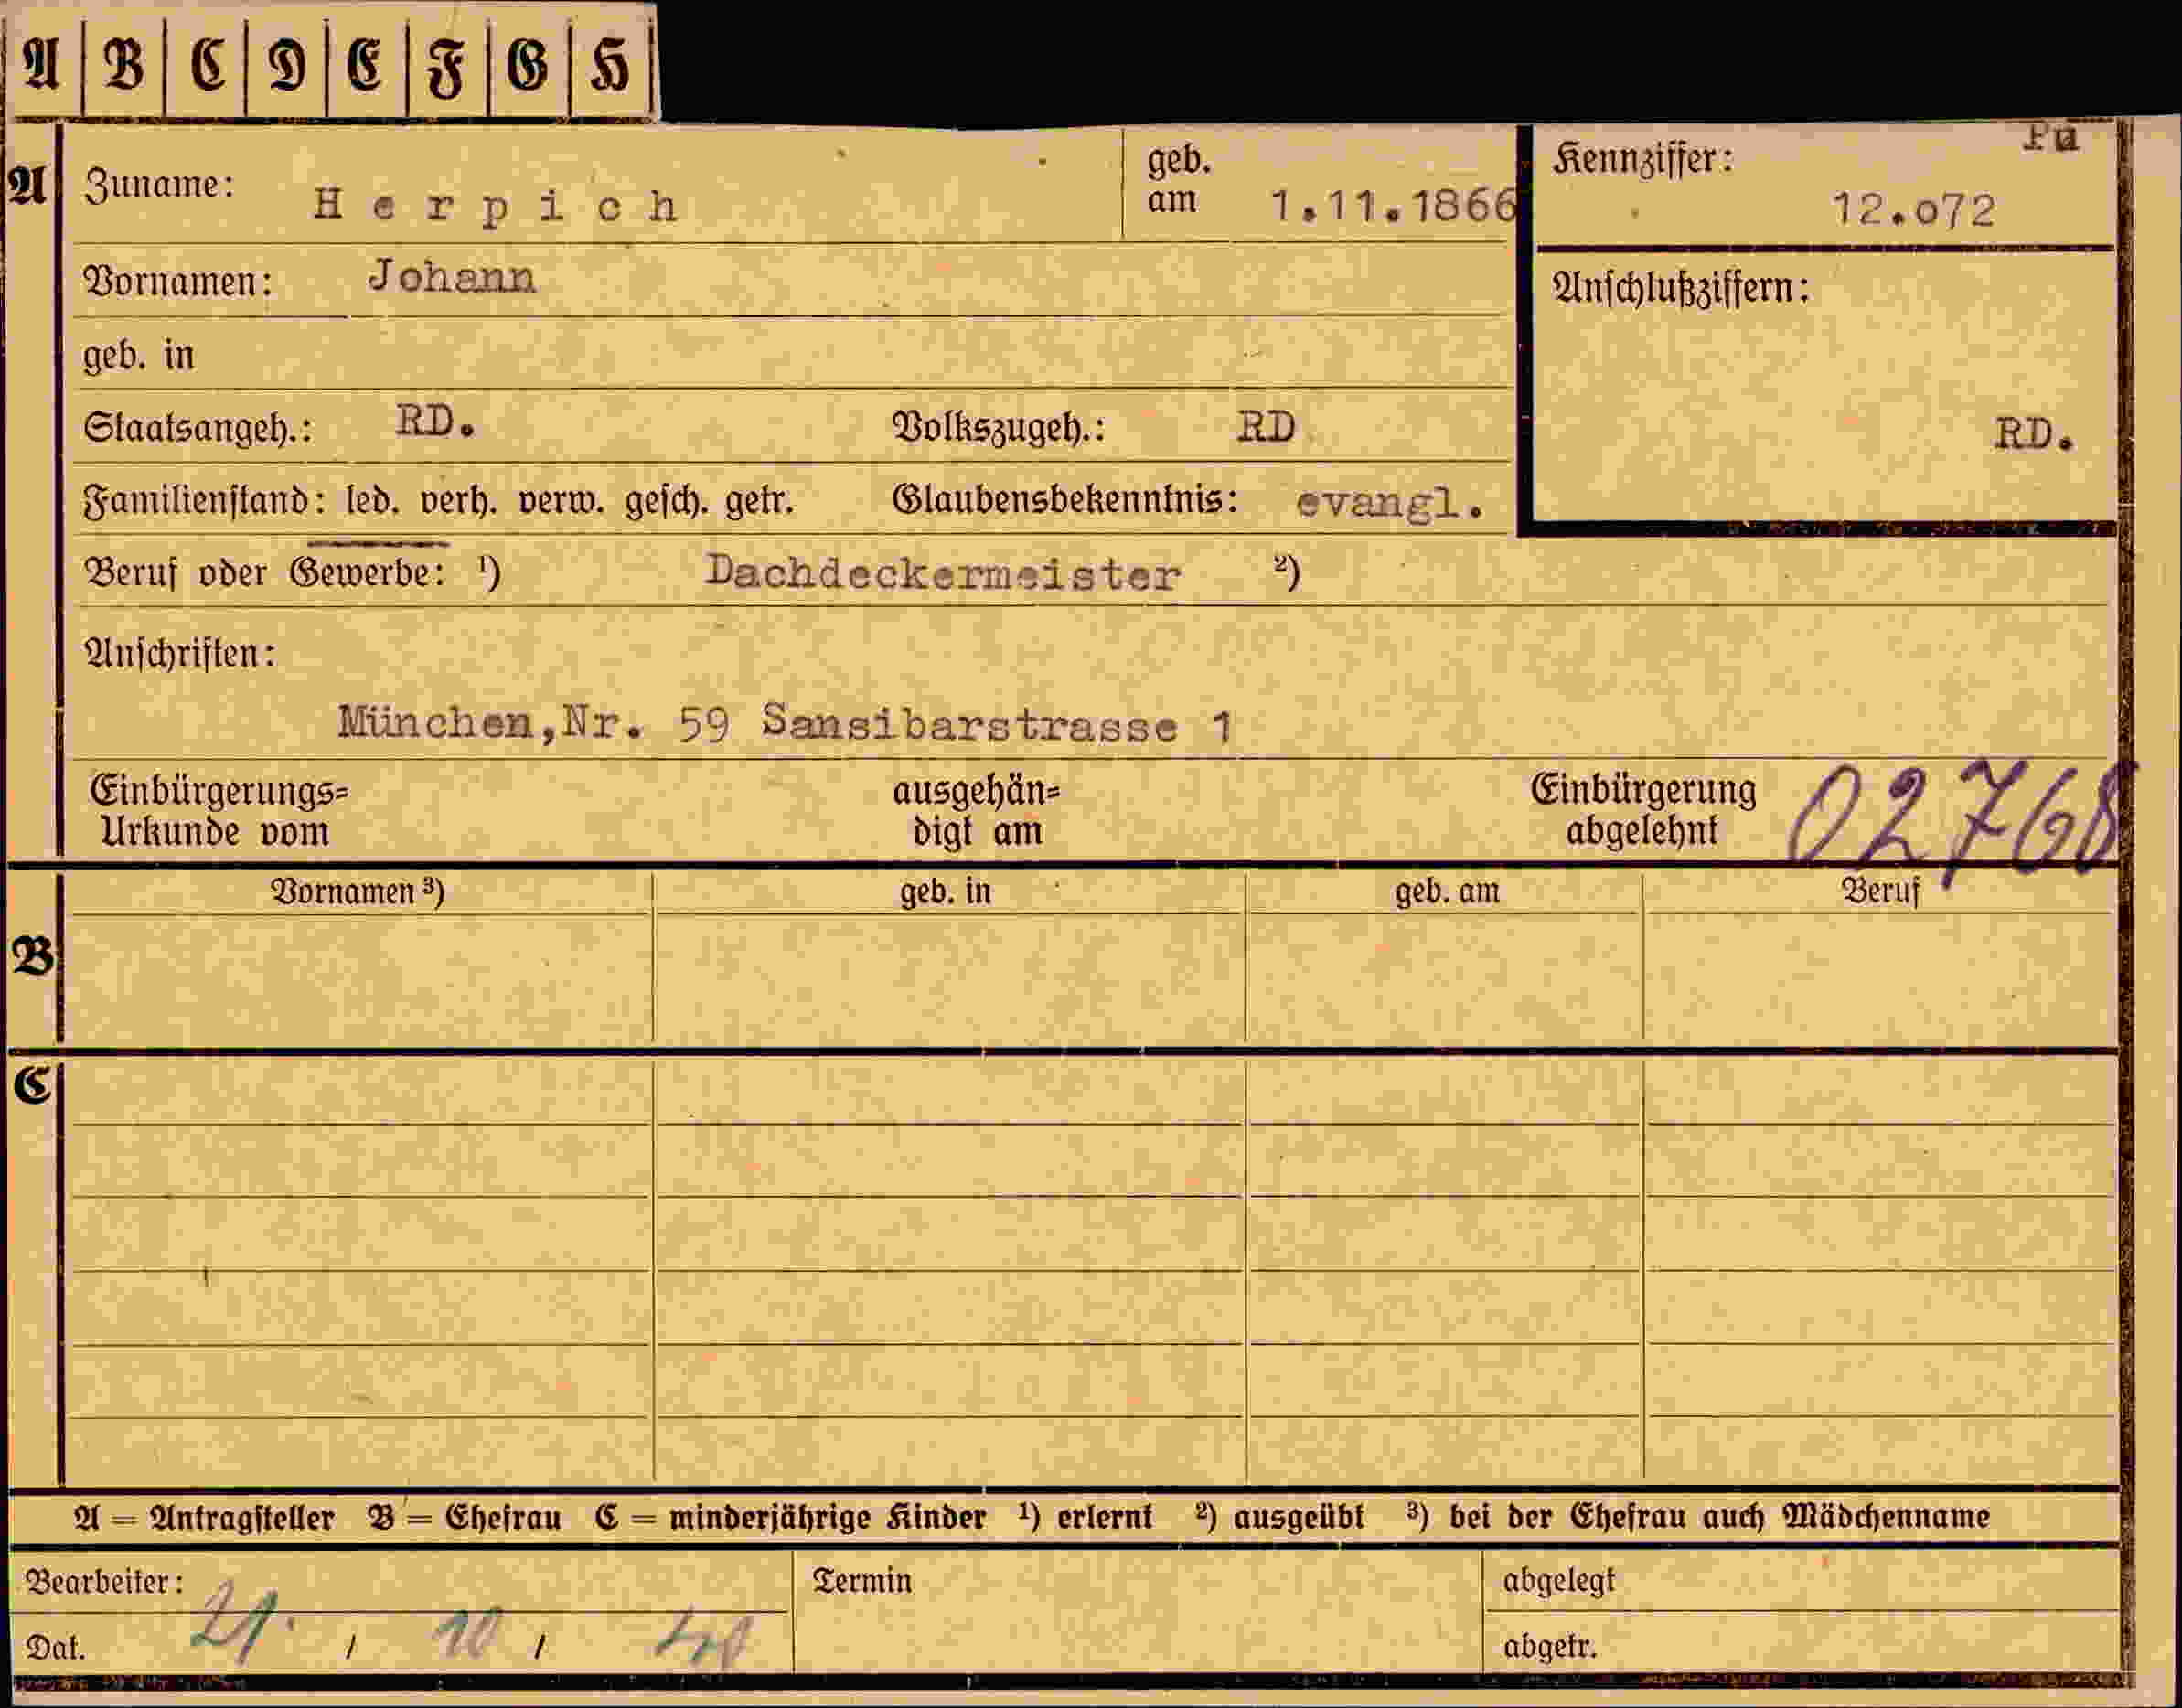 A B C D E F G H
Pü
A
Zuname: Herpich
geb. am 1.11.1866
Kennziffer: 12.o72
Vornamen: Johann
Anschlußziffern:
geb. in
Staatsangeh.: RD. Volkszugeh.: RD
RD.
Familienstand: led. verh. verw. gesch. getr. Glaubensbekenntnis: evangl.
Beruf oder Gewerbe: ¹) Dachdeckermeister ²)
Anschriften:
München,Nr. 59 Sansibarstrasse 1
Einbürgerungs= ausgehän= Einbürgerung 02768
Urkunde vom digt am abgelehnt
Vornamen ³) geb. in geb. am Beruf
B
C
A = Antragsteller B = Ehefrau C = minderjährige Kinder ¹) erlernt ²) ausgeübt ³) bei der Ehefrau auch Mädchenname
Bearbeiter: Termin abgelegt
Dat. 21. / 10 / abgetr.